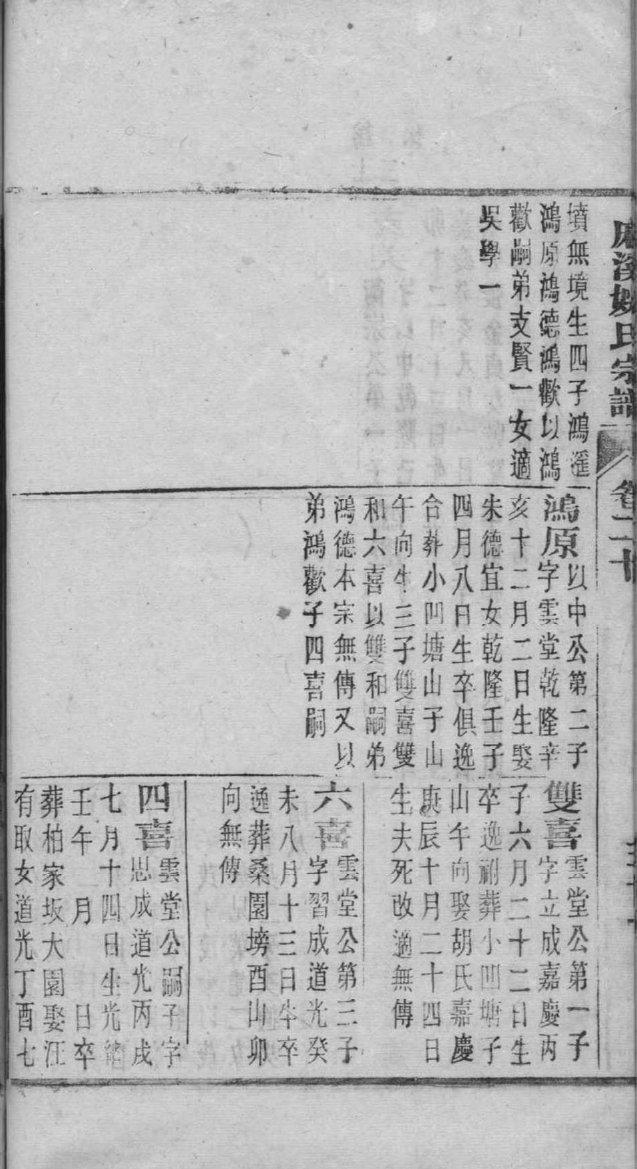 麻溪姚氏宗譜
卷二十
墳無境生四子鴻滙
鴻原鴻德鴻歡以鴻
歡嗣弟支賢一女適
吳學一
鴻原以中公第二子
字雲堂乾隆辛
亥十二月二日生娶
朱德宜女乾隆壬子
四月八日生卒俱逸
合葬小凹塘山子山
午向生三子雙喜雙
和六喜以雙和嗣弟
鴻德本宗無傳又以
弟鴻歡子四喜嗣
雙喜雲堂公第一子
字立成嘉慶丙
子六月二十二日生
卒逸祔葬小凹塘子
山午向娶胡氏嘉慶
庚辰十月二十四日
生夫死改適無傳
六喜雲堂公第三子
字習成道光癸
未八月十三日生卒
逸葬桑園塝酉山卯
向無傳
四喜雲堂公嗣子字
思成道光丙戌
七月十四日生光緒
壬午 月 日卒
葬柏家坂大園娶汪
有取女道光丁酉七